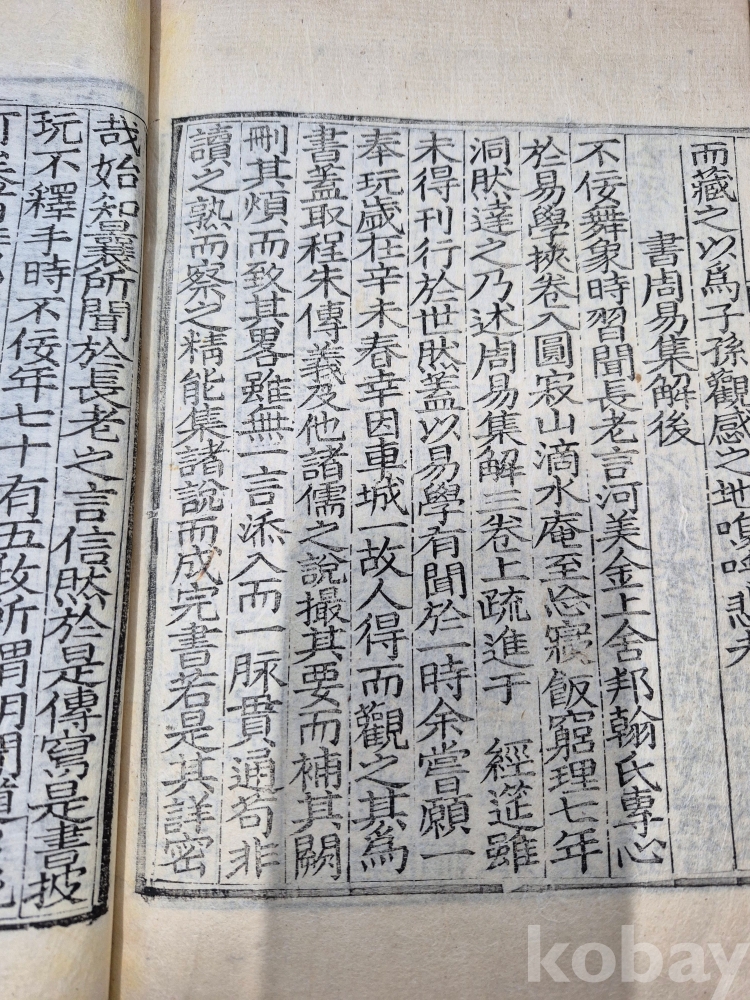 而藏之以爲子孫觀感之地嗚呼悲夫
書周易集解後
不佞舞象時習聞長老言河美金上舍邦翰氏專心
於易學挾卷入圓寂山滴水庵至忘寢飯窮理七年
洞然達之乃述周易集解三卷上疏進于 經筵雖
未得刊行於世然蓋以易學有聞於一時余嘗願一
奉玩歲在辛未春幸因車城一故人得而觀之其爲
書蓋取程朱傳義及他諸儒之說撮其要而補其闕
刪其煩而致其畧雖無一言添入而一脉貫通苟非
讀之熟而察之精能集諸說而成完書若是其詳密
哉始知曩所聞於長老之言信然於是傳寫是書披
玩不釋手時不佞年七十有五政所謂朝聞道
kobay